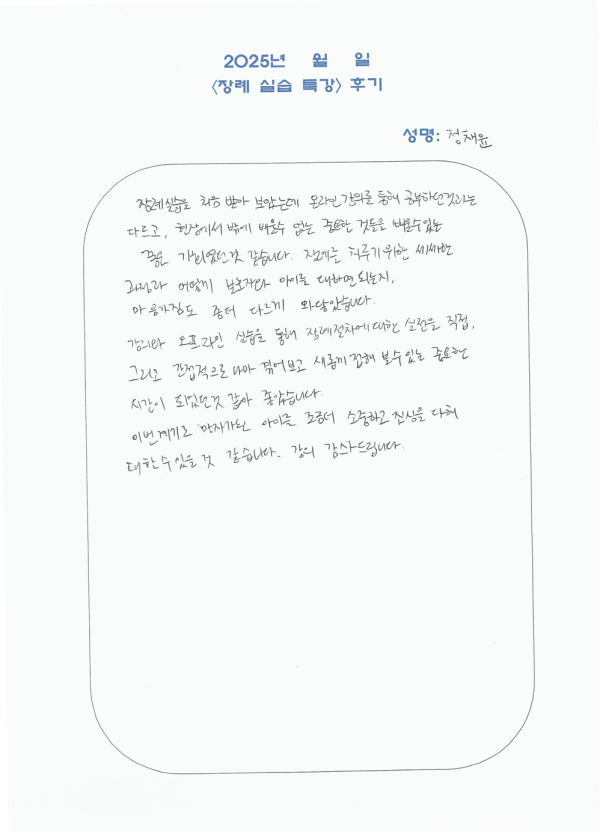 2025년 월 일
<장례 실습 특강> 후기
성명: 정채윤
장례실습을 처음 받아 보았는데 온라인강의를 통해 공부하던것과는
다르고, 현장에서 밖에 배울수 없는 중요한 것들을 배울수있는
좋은 기회였던것 같습니다. 장례를 치루기위한 세세한
과정과 어떻게 보호자와 아이를 대하면되는지,
마음가짐도 좀더 다르게 와닿았습니다.
강의와 오프라인 실습을 통해 장례절차에대한 실전을 직접,
그리고 간접적으로나마 겪어보고 새롭게 접해 볼수있는 중요한
시간이 되었던것 같아 좋았습니다.
이번계기로 망자가된 아이를 조금더 소중하고 진심을 다해
대할수있을 것 같습니다. 강의 감사드립니다.